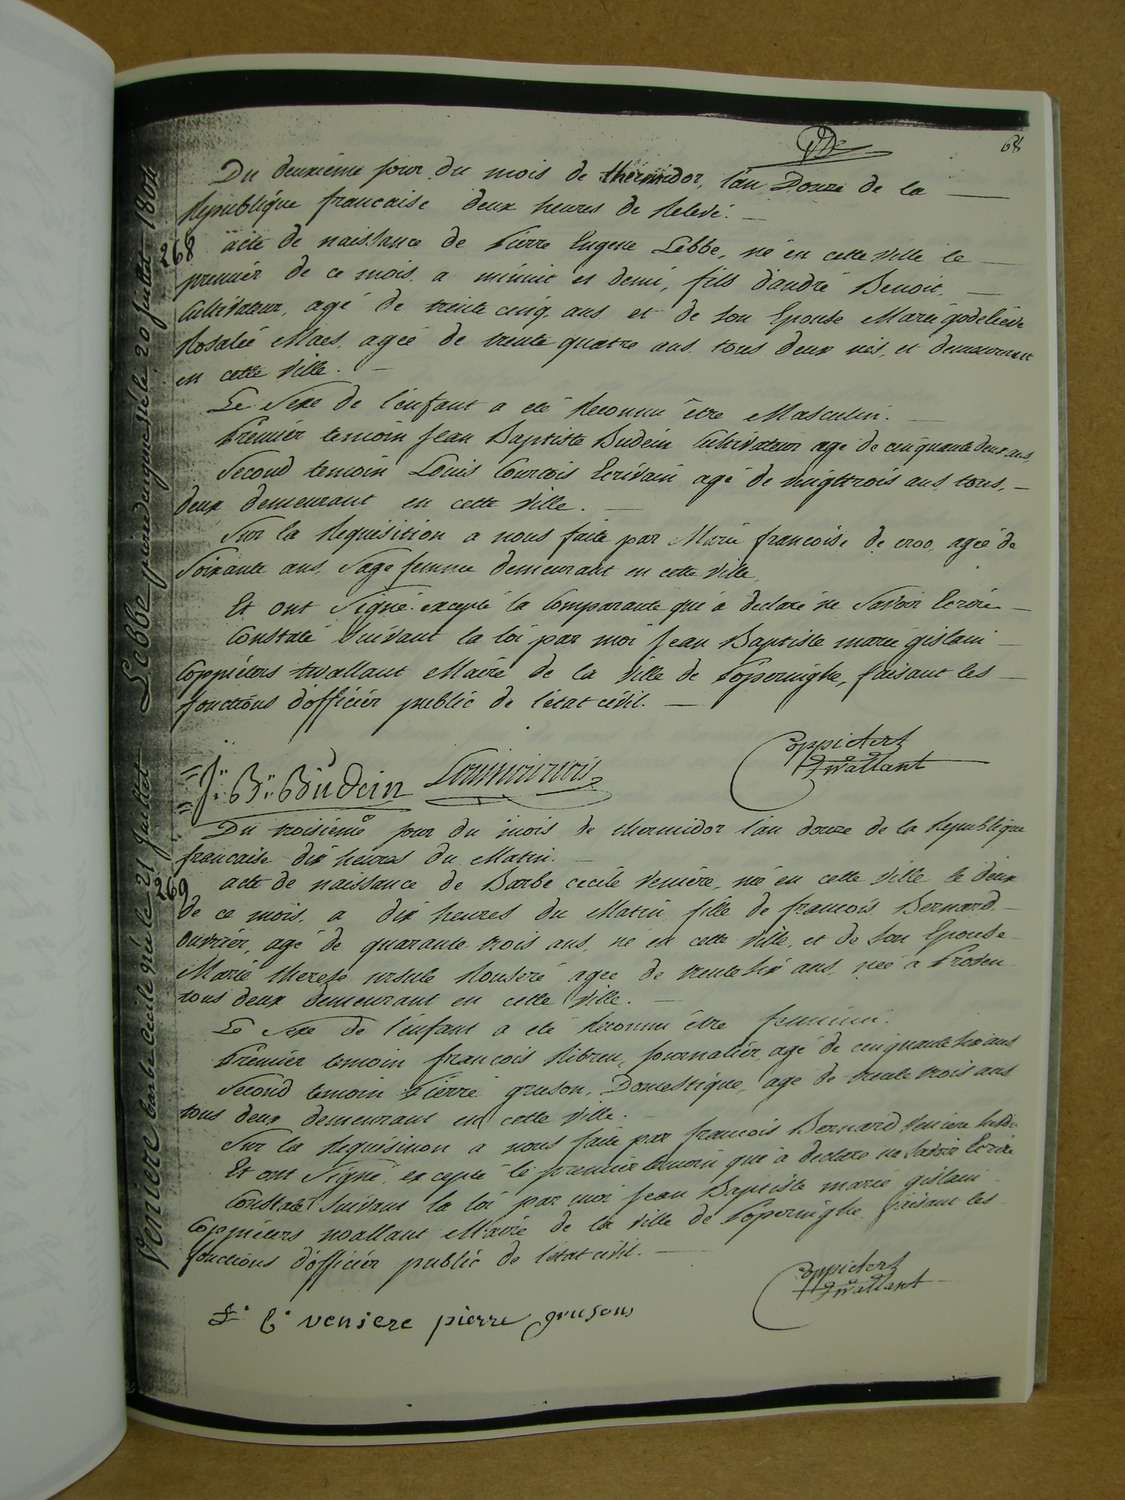 64
Du deuxieme jour du mois de thermidor, l'an Douze de la
Republique francaise deux heures de Relevé.
268
acte de naissance de Pierre Eugene Lebbe, né en cette ville le
premiér de ce mois, a minuit et demi, fils d'andré Benoit,
Cultivateur, agé de trente cinq ans et de son Epouse Marie godelieve
Rosalie Maes, agée de trente quatre ans, tous deux nés, et demeurant
en cette ville.
Le Sexe de l'enfant a eté Reconnu être Masculin.
Premiér temoin Jean Baptiste Budein Cultivateur agé de cinquante deux ans,
Second temoin Louis Courtois Ecrivain agé de vingttrois ans, tous,
deux demeurant en cette ville.
Sur la Requisition a nous faite par Marie francoise de croo, agée de
Soixante ans, Sage femme demeurant en cette ville,
Et ont Signé excepté la Comparante qui a declaré ne Savoir Ecrire
Constaté Suivant la loi par moi Jean Baptiste marie gislain
Coppieters twallant Maire de la ville de Poperinghe, faisant les
fonctions d'officiér public de l'état civil.
Coppieters
Twallant
J. B. Budein
Du troisieme jour du mois de thermidor l'an douze de la Republique
francaise dix heures du Matin.
269
acte de naissance de Barbe cecile Veniere, née en cette ville le deux
de ce mois, a dix heures du Matin, fille de francois Bernard,
ouvriér, agé de quarante trois ans, né en cette ville, et de son Epouse
Marie therese ursule agée de trente six ans, née a Proven
tous deux demeurant en cette ville.
Le Sexe de l'enfant a eté Reconnu être feminin.
Premiér temoin francois journaliér, agé de cinquante six ans
Second temoin Pierre gruson, Domestique, agé de trente trois ans
tous deux demeurant en cette ville.
Sur la Requisition a nous faite par francois Bernard Veniere
Et ont Signé, excepté le premier temoin qui a declaré ne Savoir Ecrire
Constaté Suivant la loi par moi Jean Baptiste marie gislain
Coppieters twallant Maire de la ville de Poperinghe, faisant les
fonctions d'officiér public de l'état civil.
Coppieters
Twallant
veniere pierre grusons
Lebbe pierre eugene né le 20 juillet 1804
Veniere barbe cecile née le 21 juillet